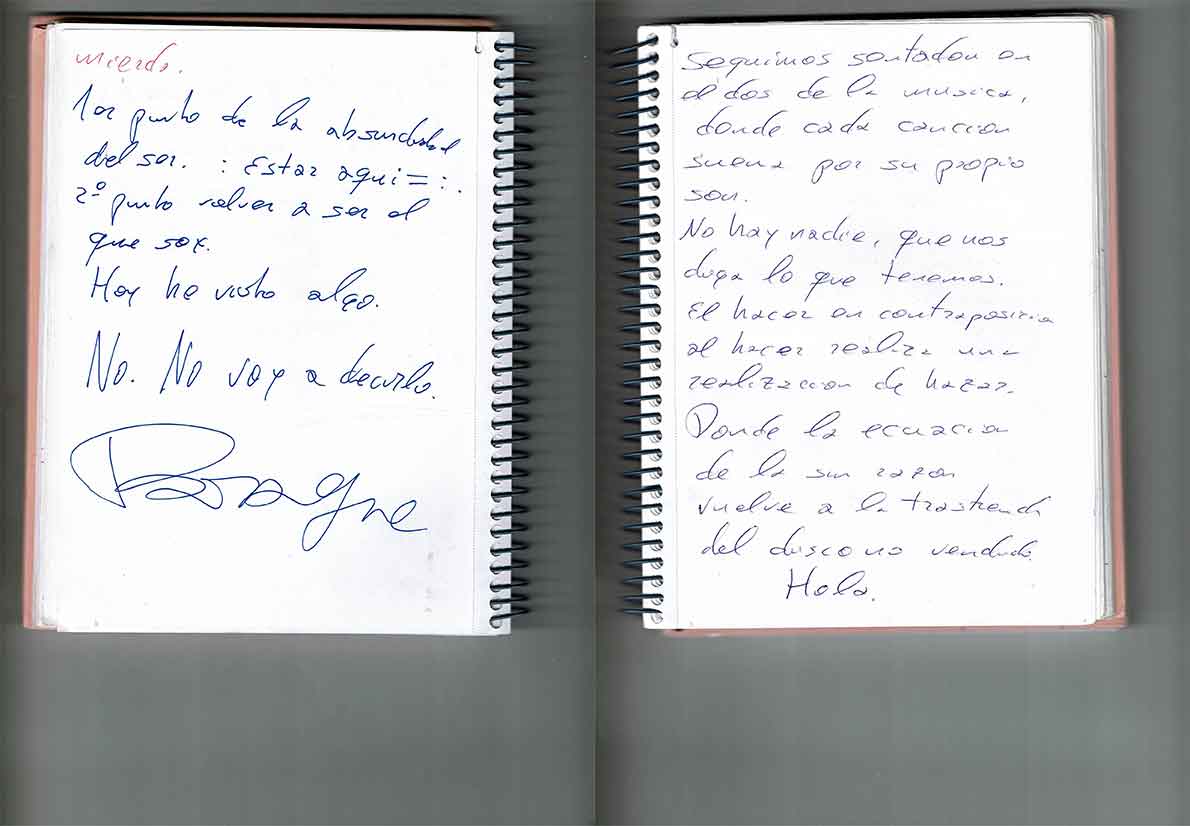 mierda.
1er punto de la absurdidad
del ser. : Estar aqui = :.
2º punto volver a ser el
que soy.
Hoy he visto algo.
No. No voy a decirlo.
seguimos sentados en
el dos de la musica,
donde cada cancion
suena por su propio
son.
No hay nadie, que nos
diga lo que tenemos.
El hacer en contraposicion
al hacer realiza una
realizacion de hacer.
Donde la ecuacion
de la sin razon
vuelve a la trastienda
del disco no vendido.
Hola.